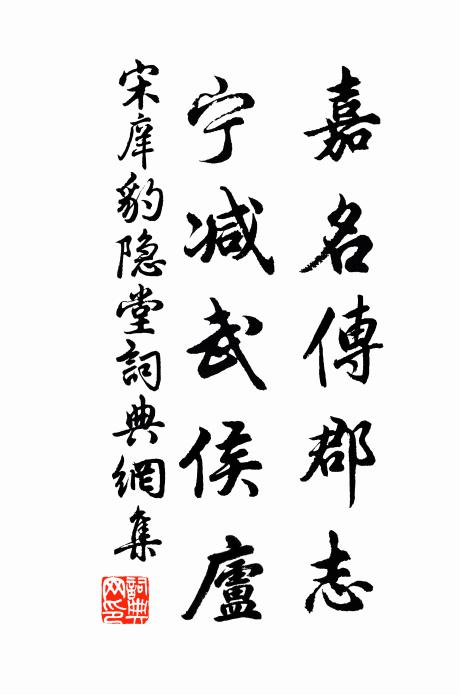 嘉名傳郡志
宁減武侯廬
宋庠豹隐堂詞典網集
詞典网印